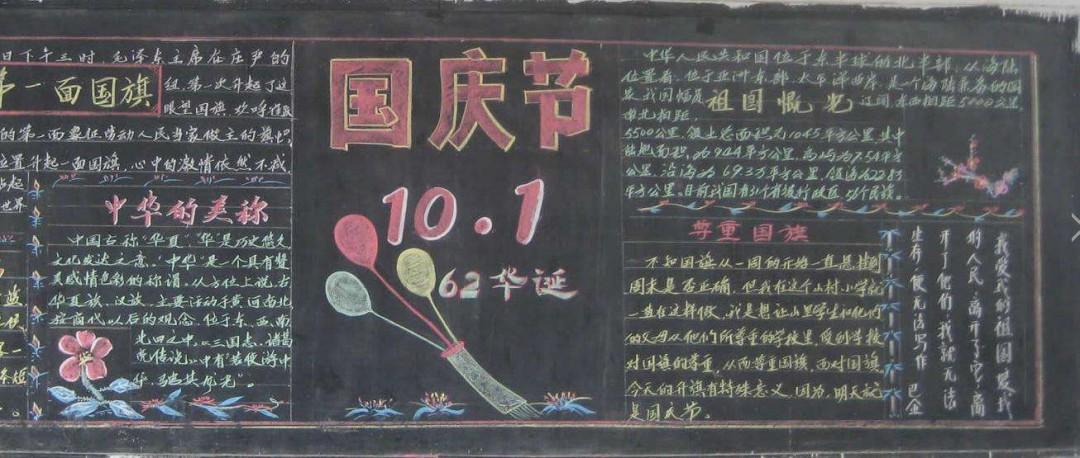 日下午三时,毛泽东主席在庄严的
第一面国旗
的第一面象征劳动人民当家做主的旗帜
位置升起一面国旗,心中的激情依然不减
世界
中华的美称
中国古称"华夏","华"是历史悠久
文化发达之意,"中华"是一个具有丰
美感情色彩的称谓,从方位上说,古
华夏族、汉族、主要活动于黄河南北
按商代以后的观念,位于东、西、南
北四之中,《三国志·诸葛
亮传说》中有"若使游中
华,骋其龙光"。
国庆节
10.1
62华诞
中华人民共和国位于东半球的北半部,从海陆
位置看,位于亚洲东部,太平洋西岸,是一个海陆兼备的国
家,我国幅员
祖国慨光
辽阔,东西相距5000公里,
南北相距
5500公里,领土总面积为1045平方公里,其中
陆地面积,为924平方公里,岛屿为7.54平方
公里,
平方公里,目前我国有31个省级行政区,
尊重国旗
不知国旗从一周的开始一直悬挂到
周末是否正确,但我在这个山村小学就
一直在这样做,我是想让山里学生和他们
的父母从他们所尊重的学校里,受到学校
对国旗的尊重,从而尊重国旗,面对国旗
今天的升旗有特殊意义,因为,明天就
是国庆节。
我爱我的祖国,爱我
的人民,离开了它,离
开了他们,我就无法
生存,便无法写作 巴金